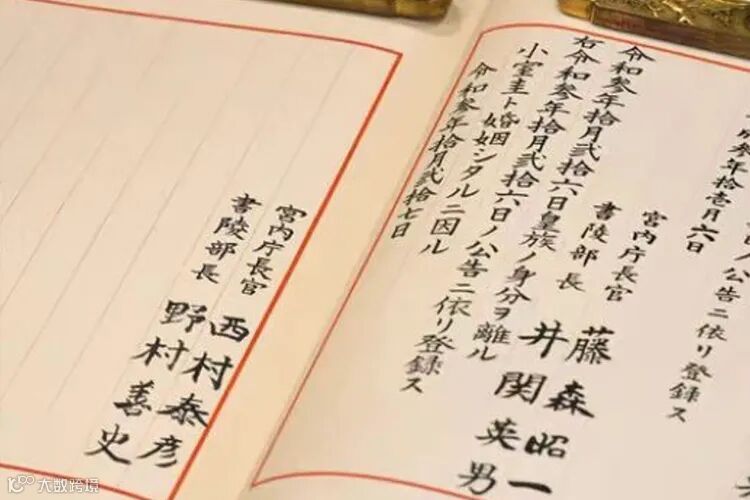 ノ公告ニ依リ登録ス
參年拾壱月六日
宮内庁長官 藤森昭一
書陵部長 井関英男
令和參年拾月弐拾六日皇族ノ身分ヲ離ル
右令和參年拾月弐拾六日ノ公告ニ依リ登録ス
小室圭ト婚姻シタルニ因ル
令和參年拾月弐拾七日
宮内庁長官 西村泰彦
書陵部長 野村善史
大数跨境